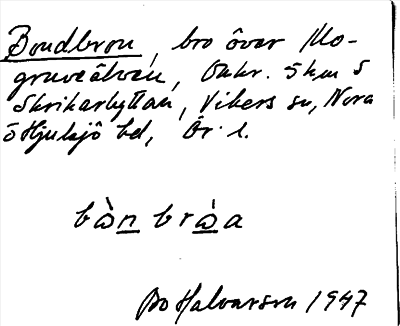 Bondbron, bro över Mo-
gruveälven, Omkr. 5 km S
Skrikarhyttan, Vikers sn, Nora
o Hjulsjö bel, Ör. l.
bὼn brὼa
Bo Halvarson 1947